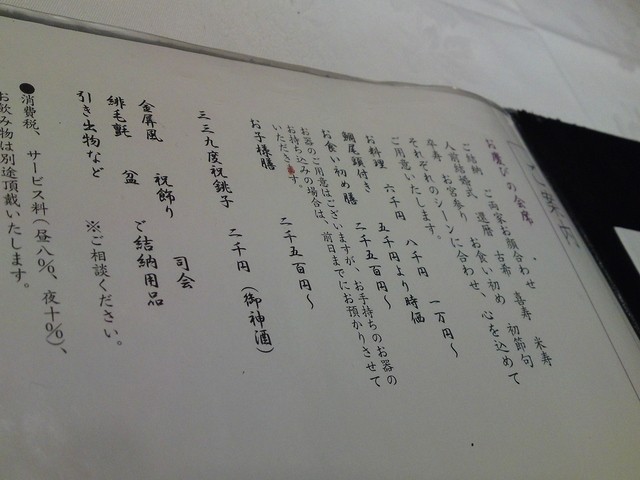 ご案内
お慶びの会席
ご結納 ご両家お顔合わせ
人前結婚式 還暦 古希 喜寿 米寿
卒寿 お宮参り お食い初め 初節句
それぞれのシーンに合わせ、心を込めて
ご用意いたします。
お料理 六千円 八千円 一万円～
鯛尾頭付き 五千円より時価
お食い初め膳 二千五百円～
お器のご用意はございますが、お手持ちのお器の
お持ち込みの場合は、前日までにお預かりさせて
いただきます。
お子様膳 二千五百円～
三三九度祝銚子 二千円 (御神酒)
金屏風 祝飾り 司会
緋毛氈 盆 ご結納用品
引き出物など ※ご相談ください。
●消費税、サービス料(昼八%、夜十%)、
お飲み物は別途頂戴いたします。